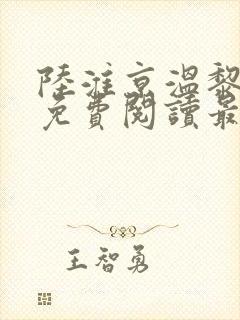 陸淮京溫黎
免費閱讀最
王智勇